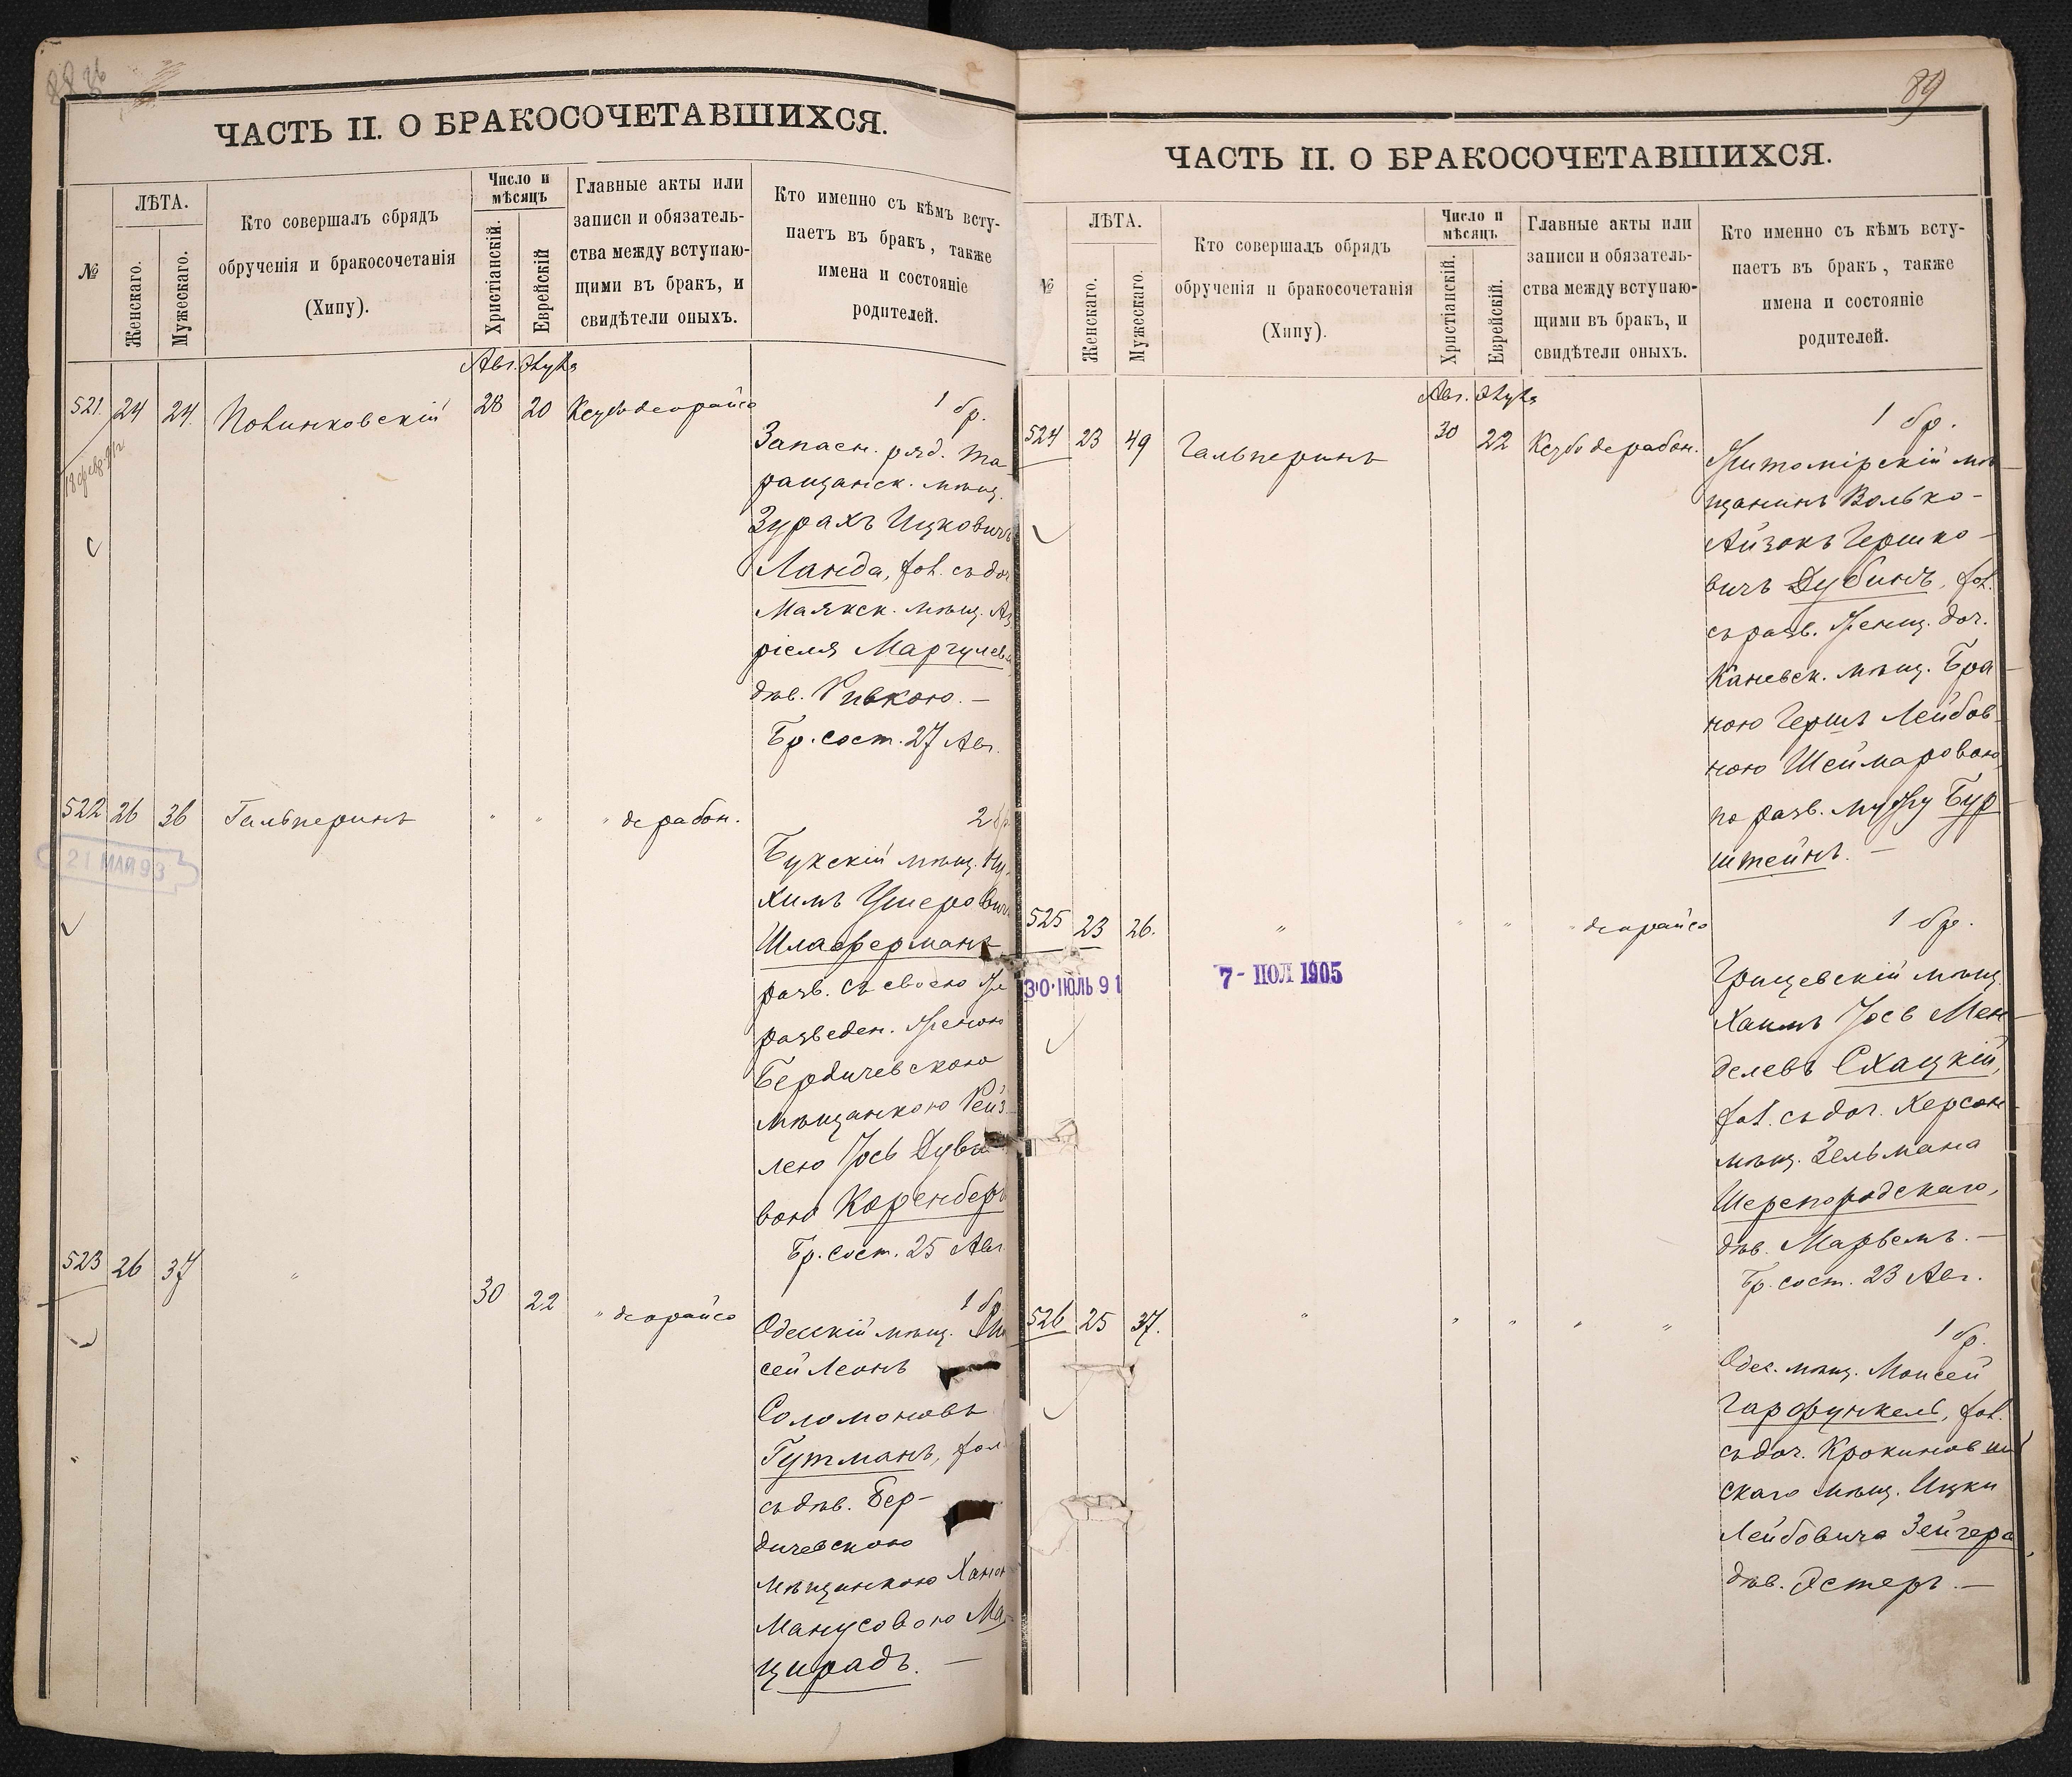 ЧАСТЬ II. О БРАКОСОЧЕТАВШИХСЯ.
№
ЛѢТА.
Женскаго.
Мужескаго.
Кто совершалъ обрядъ
обрученія и бракосочетанія
(Хипу).
Число и
мѣсяцъ
Христіанскій.
Еврейскій
Главные акты или
записи и обязатель-
ства между вступаю-
щими въ бракъ, и
свидѣтели оныхъ.
Кто именно съ кѣмъ всту-
паетъ въ бракъ, также
имена и состояніе
родителей.
Авг.
521. 24 24. 28 20
1 бр.
Запасн. ряд. Та-
ращанск. мѣщ.
Зурахъ Ицковичъ
Ланда, съ доч
Маякск. мѣщ.
ріеля
дѣв. Ривкою. —
Бр. сост. 27 Авг.
522 26 36 Гальперинъ " " " дерабон.
21 МАЯ 93
2 бр
мѣщ.
химъ Ушеровичъ
Шлаферманъ
разв. съ своею же
разведен. женою
Бердичевскою
мѣщанкою Рейз-
лею Іось
вою Коренберъ
Бр. сост. 25 Авг
523 26 37 " 30 22 " деорайсо
1 бр.
Одесскій мѣщ.
сей Леонъ
Соломоновъ
Гутманъ,
съ дѣв. Бер-
дичевскою
мѣщанкою
Манусовою
цирадъ. —
89
ЧАСТЬ II. О БРАКОСОЧЕТАВШИХСЯ.
№
ЛѢТА.
Женскаго.
Мужескаго.
Кто совершалъ обрядъ
обрученія и бракосочетанія
(Хипу).
Число и
мѣсяцъ
Христіанскій.
Еврейскій.
Главные акты или
записи и обязатель-
ства между вступаю-
щими въ бракъ, и
свидѣтели оныхъ.
Кто именно съ кѣмъ всту-
паетъ въ бракъ, также
имена и состояніе
родителей.
Авг.
524 23 49 Гальперинъ 30 22 Кезубо дерабон.
1 бр.
Житомірскій мѣ-
щанинъ Волько-
Айзокъ Гершко-
вичъ Дубинъ,
съ разв. женщ. доч.
Каневск. мѣщ. Бра-
ною Гершъ Лейбов-
ною Шеймаровою
по разв. мужу Бур-
штейнъ. —
525 23 26. " " " " деорайсо
30 ІЮЛЬ 91
7 - ІЮЛ 1905
1 бр.
Грицевскій мѣщ.
Хаимъ Іось Мен-
делевъ Схацкій,
съ доч. Херсон-
мѣщ. Зельмана
Шерегородскаго,
дѣв. Марьемъ. —
Бр. сост. 23 Авг.
526 25 37. " " " " "
1 бр.
Одес. мѣщ. Моисей
Гарфункель,
съ доч.
скаго мѣщ. Ицки
Лейбовича Зейгера,
дѣв. Эстеръ. —